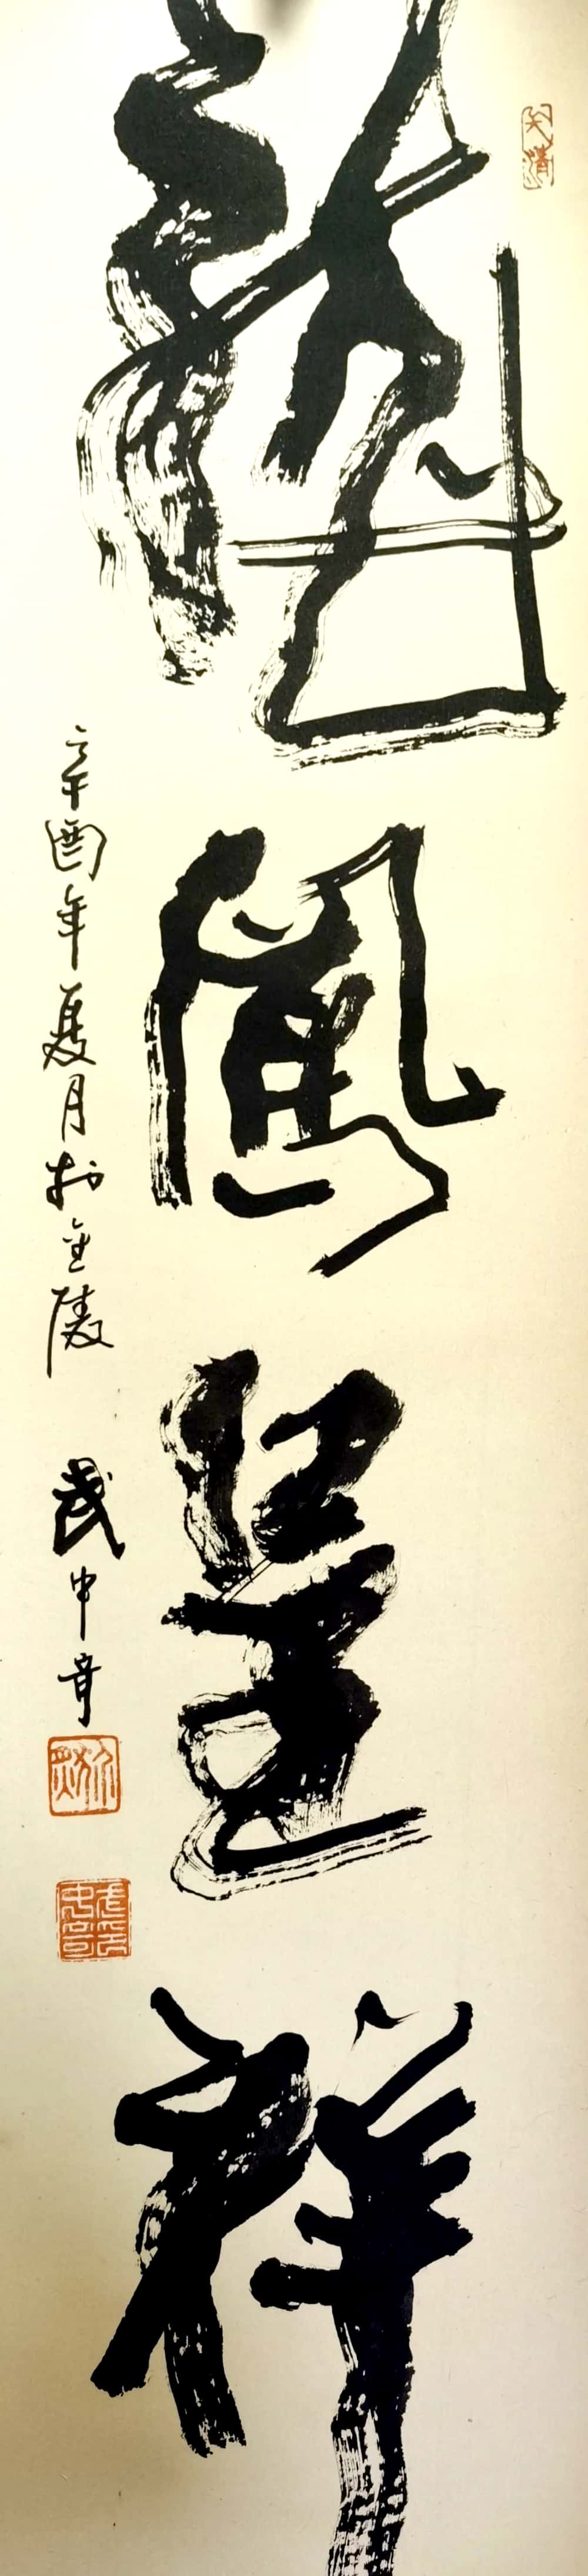 龍鳳呈祥
辛酉年夏月於金陵
武中奇